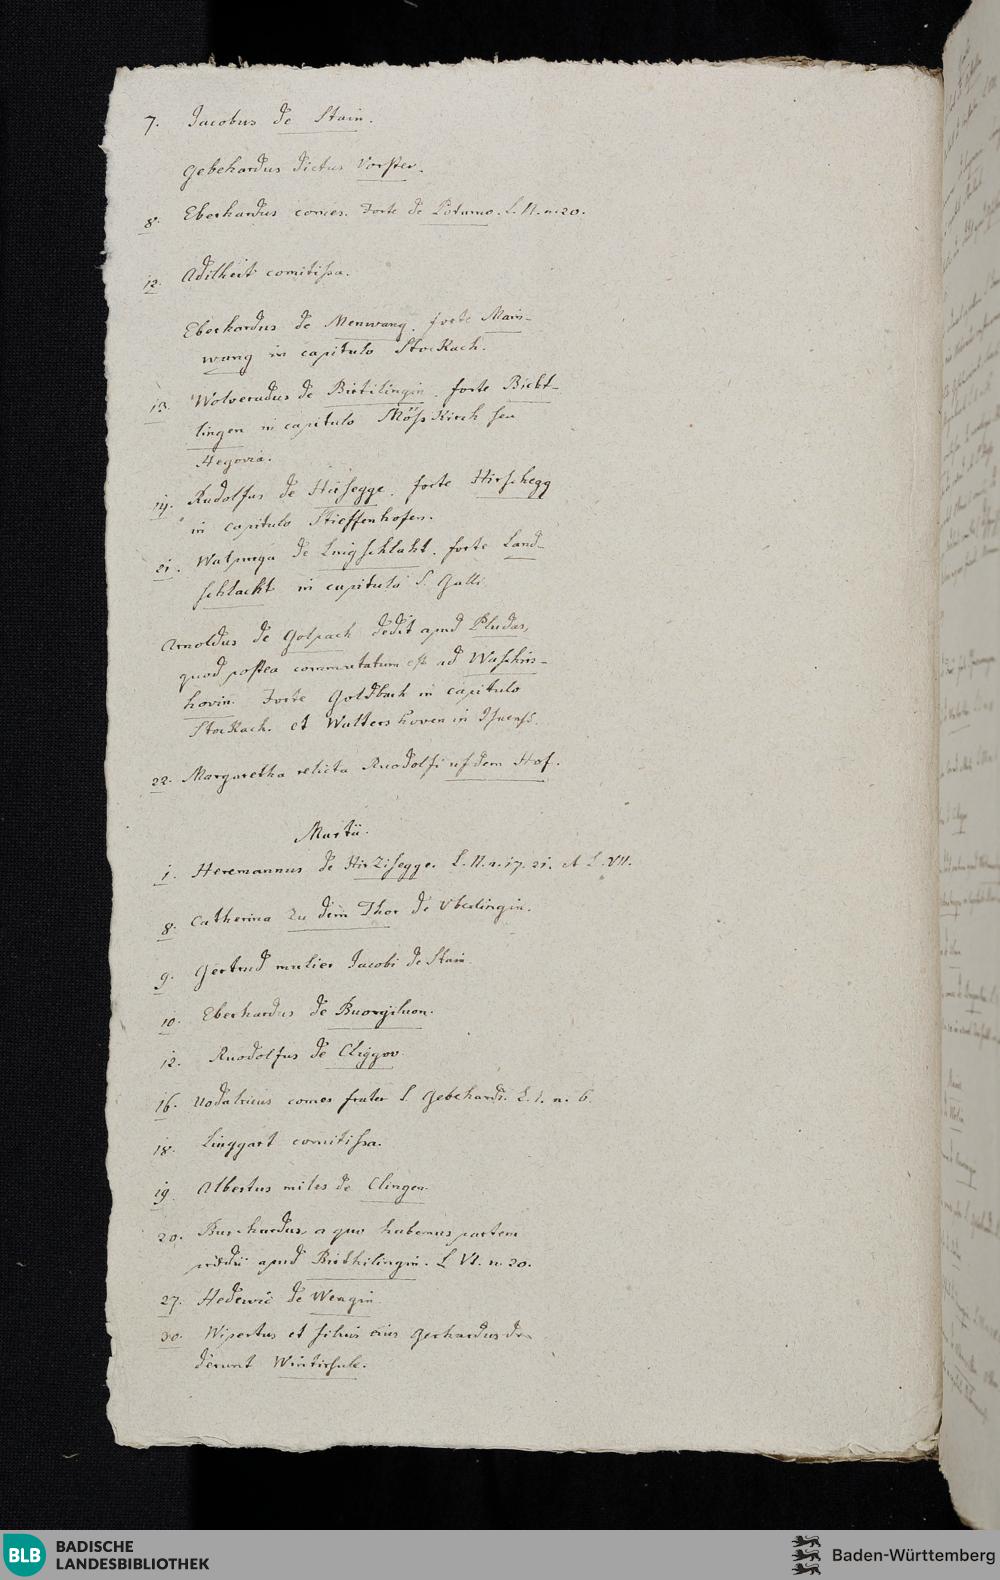 7. Jacobus de Stain.
Gebehardus dictus Vorster.
8. Eberhardus comes. Forte de Potamo. L. II. n. 20.
12. Adilheit comitissa.
Eberhardus de Menwang. forte Main-
wang in capitulo Stockach.
13. Wolveradus de Bietilingin. forte Biebt-
lingen in capitulo Mösskirch seu
Hegovia.
14. Rudolfus de Hirsegge. forte Hirschegg
in capitulo Stieffenhofen.
21. Walpurga de Lnigschlaht. forte Land-
schlacht in capitulo S. Galli.
Arnoldus de Golpach dedit apud Pludas,
quod postea commutatum est ad Waschins-
hovin. Forte Goldbach in capitulo
Stockach. et Waltershoven in Isnens.
22. Margaretha relicta Ruodolfi uf dem Hof.
Martii.
1. Heremannus de Hirzisegge. L. II. n. 17. 21. et L. VII.
8. Catherina zu dem Thor de Vberlingin.
9. Gertrud mulier Jacobi de Stain
10. Eberhardus de Buorgiluon.
12. Ruodolfus de Cliggov.
16. Uodalricus comes frater S. Gebehardi. L. I. n. 6.
18. Linggart comitissa.
19. Albertus miles de Clingen.
20. Burchardus, a quo habemus partem
prædii apud Biethilingin. L. VI. n. 20.
27. Hedewic de Wengin
30. Wipertus et filius eius Gerhardus de-
derunt Wintirsule.
BLB BADISCHE
LANDESBIBLIOTHEK
Baden-Württemberg